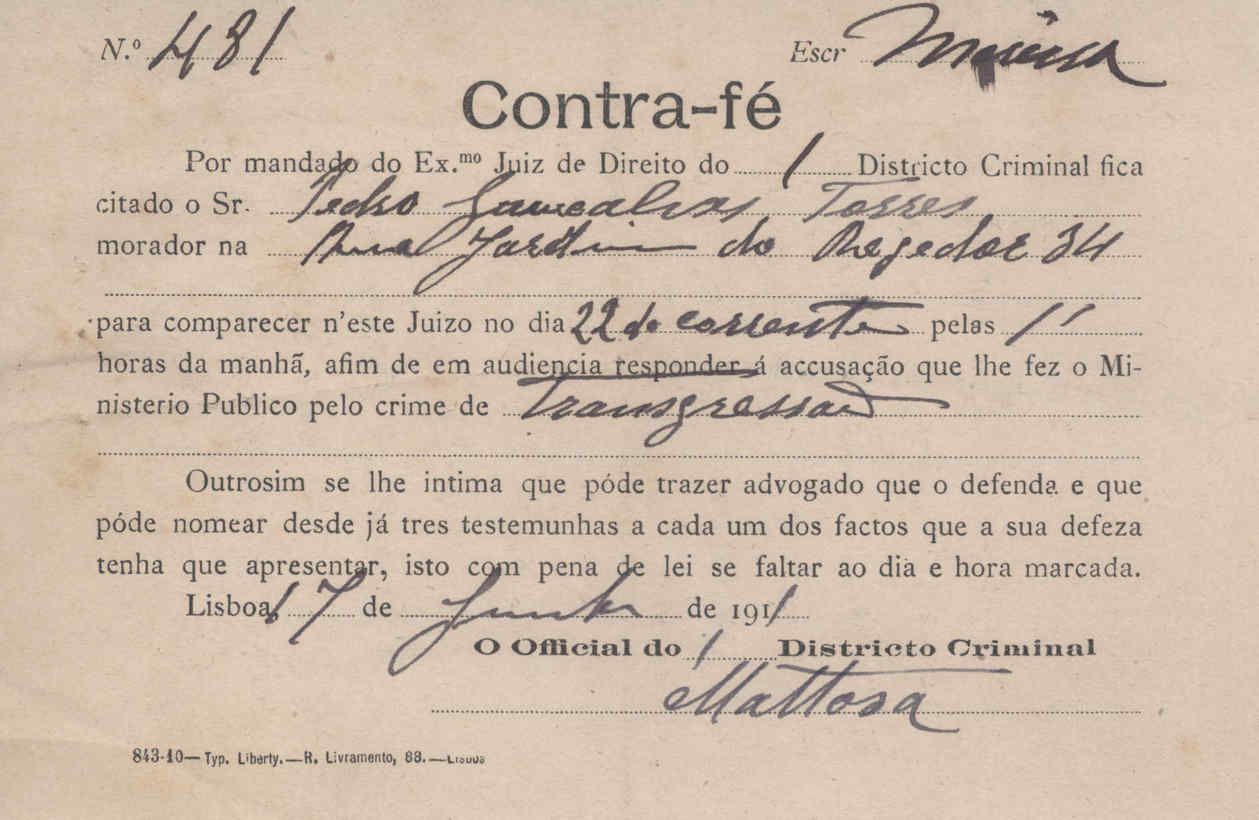 N.º 481 Escr
Contra-fé
Por mandado do Ex.mo Juiz de Direito do 1 Districto Criminal fica
citado o Sr. Pedro Gonçalves Torres
morador na Rua Jardim do Regedor 34
para comparecer n'este Juizo no dia 22 do corrente pelas 11
horas da manhã, afim de em audiencia responder á accusação que lhe fez o Mi-
nisterio Publico pelo crime de transgressão
Outrosim se lhe intima que póde trazer advogado que o defenda e que
póde nomear desde já tres testemunhas a cada um dos factos que a sua defeza
tenha que apresentar, isto com pena de lei se faltar ao dia e hora marcada.
Lisboa, 17 de Junho de 1911
O Official do 1 Districto Criminal
Mattosa
843-10—Typ. Liberty.—R. Livramento, 88.—Lisboa